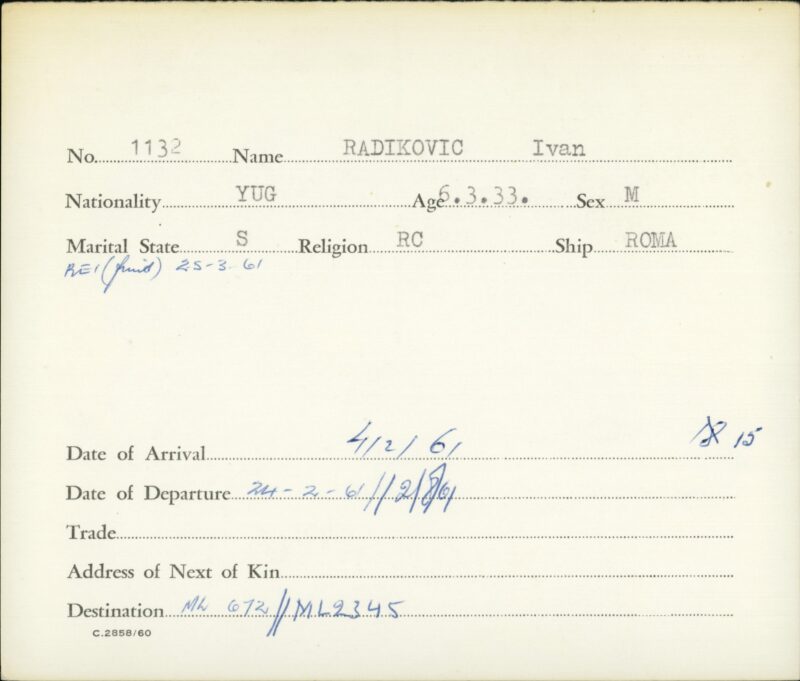 No. 1132 Name RADIKOVIC Ivan
Nationality YUG Age 6.3.33. Sex M
Marital State S Religion RC Ship ROMA
25-3-61
Date of Arrival 4/2/61 15
Date of Departure 24-2-61//
Trade
Address of Next of Kin
Destination ML 672//ML2345
C.2858/60